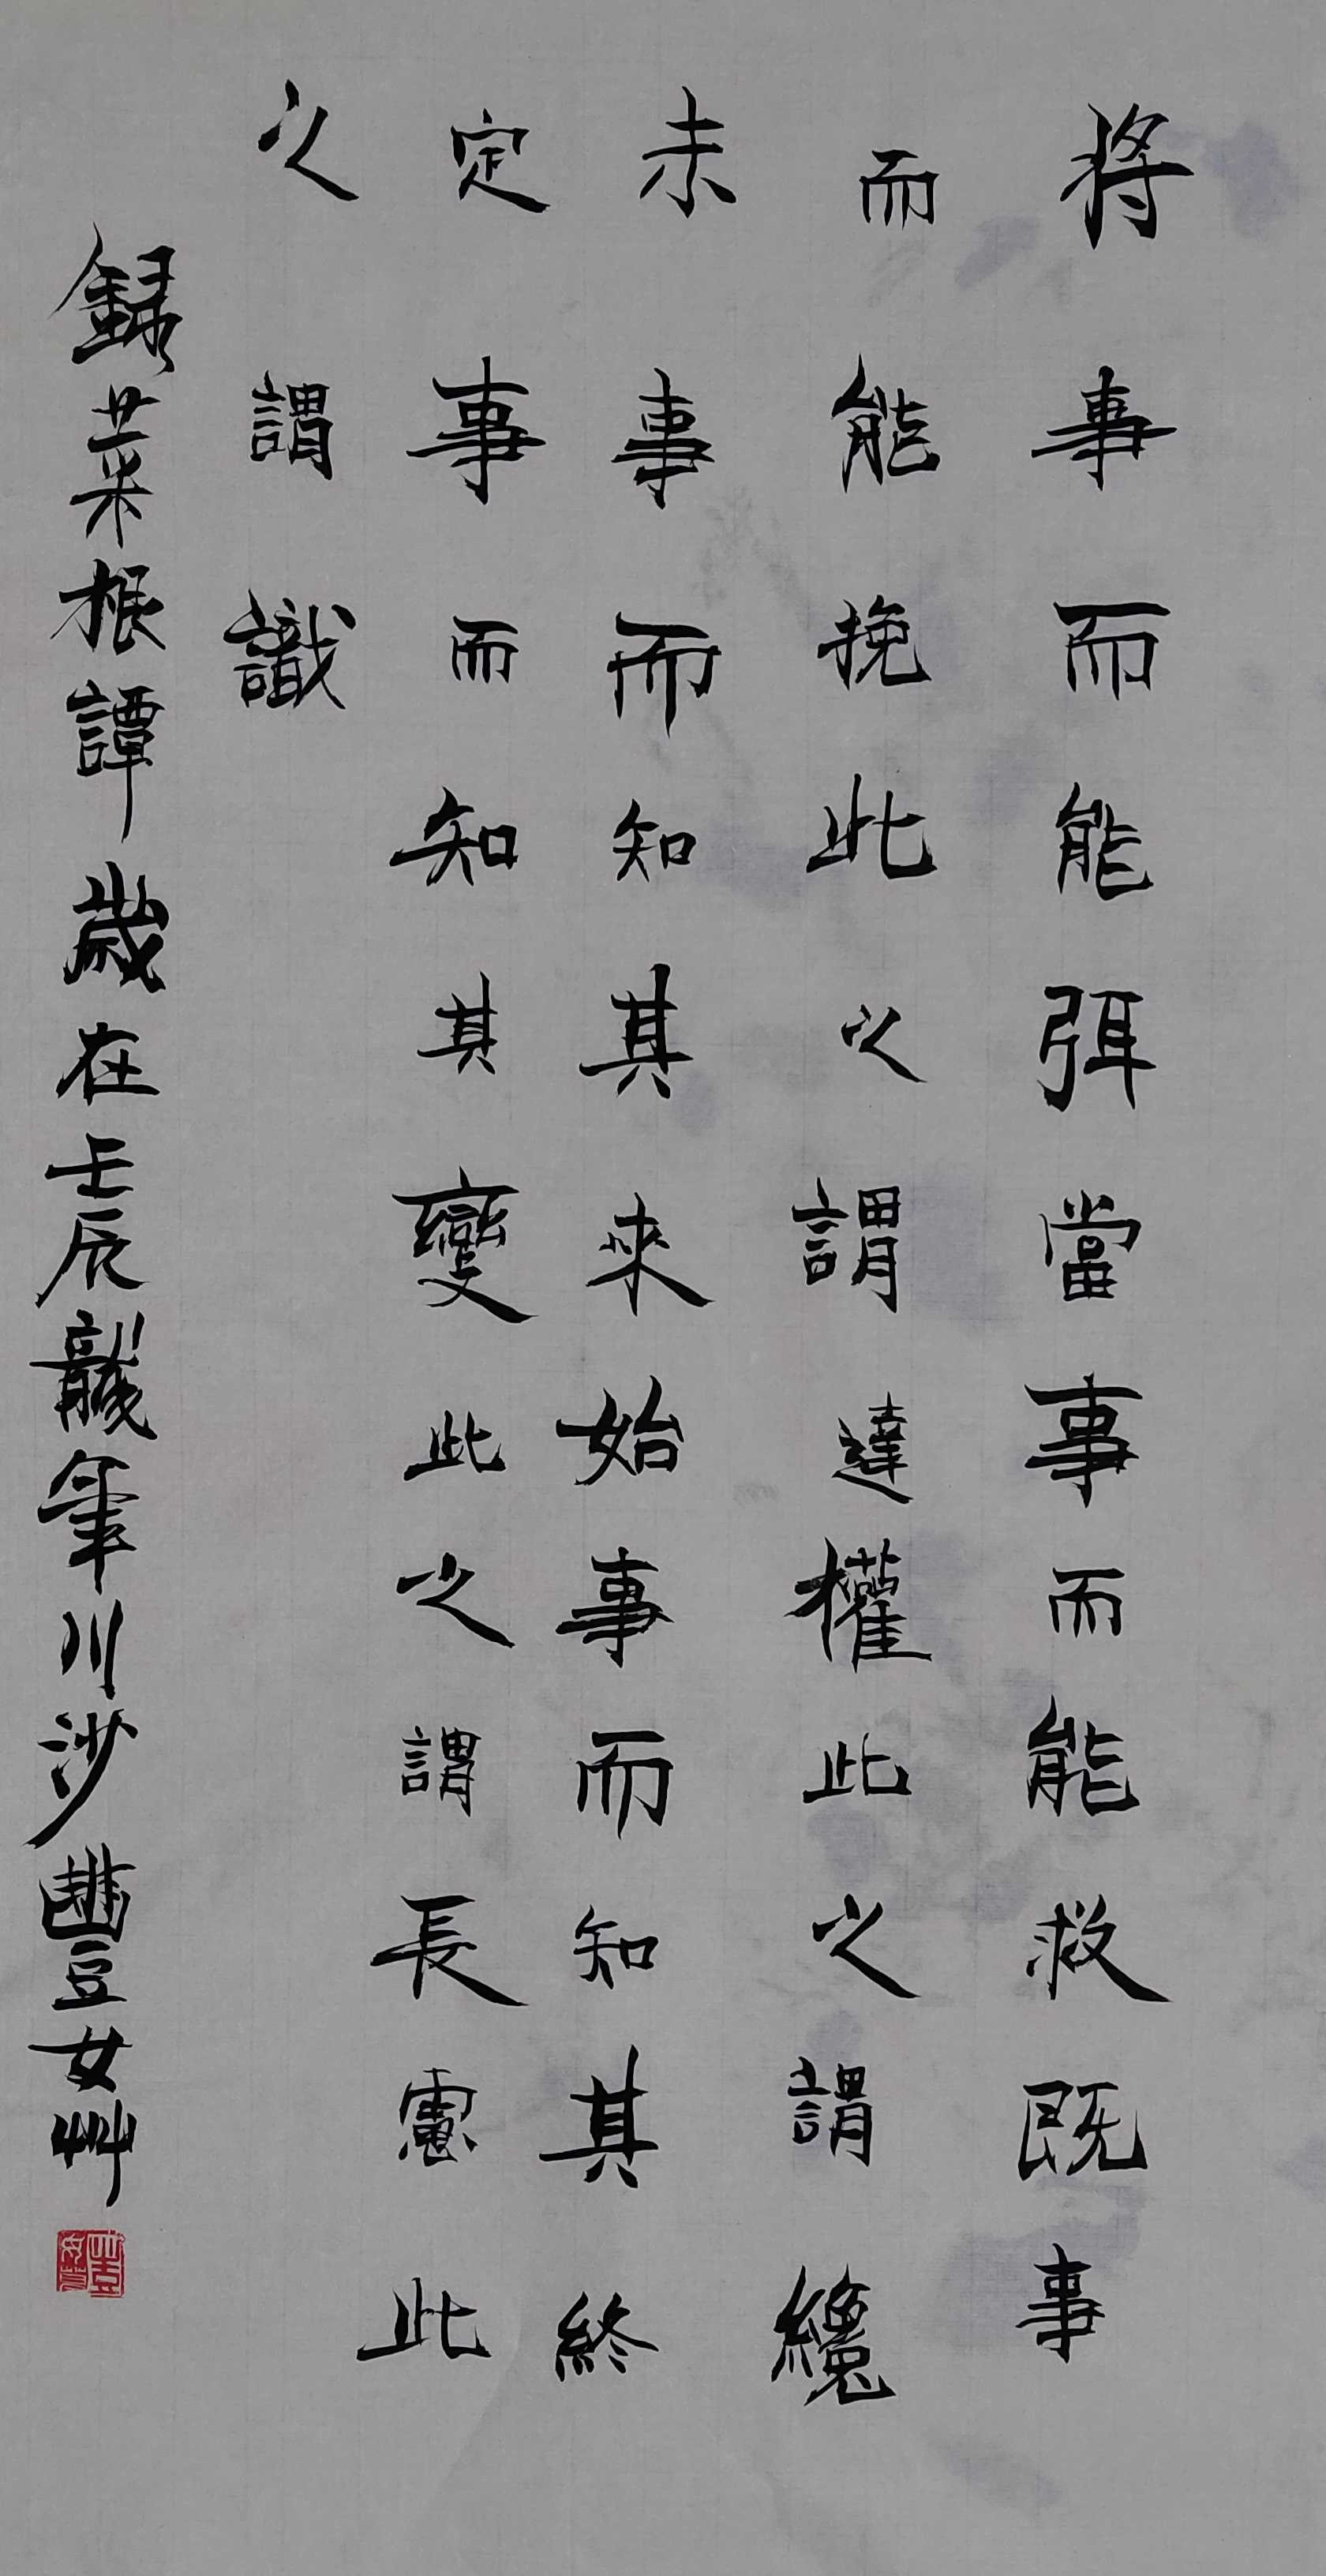 將事而能弭當事而能救既事
而能挽此之謂達權此之謂纔
未事而知其來始事而知其終
定事而知其變此之謂長慮此
之謂識
錄菜根譚歲在壬辰龍年川沙豐女艸